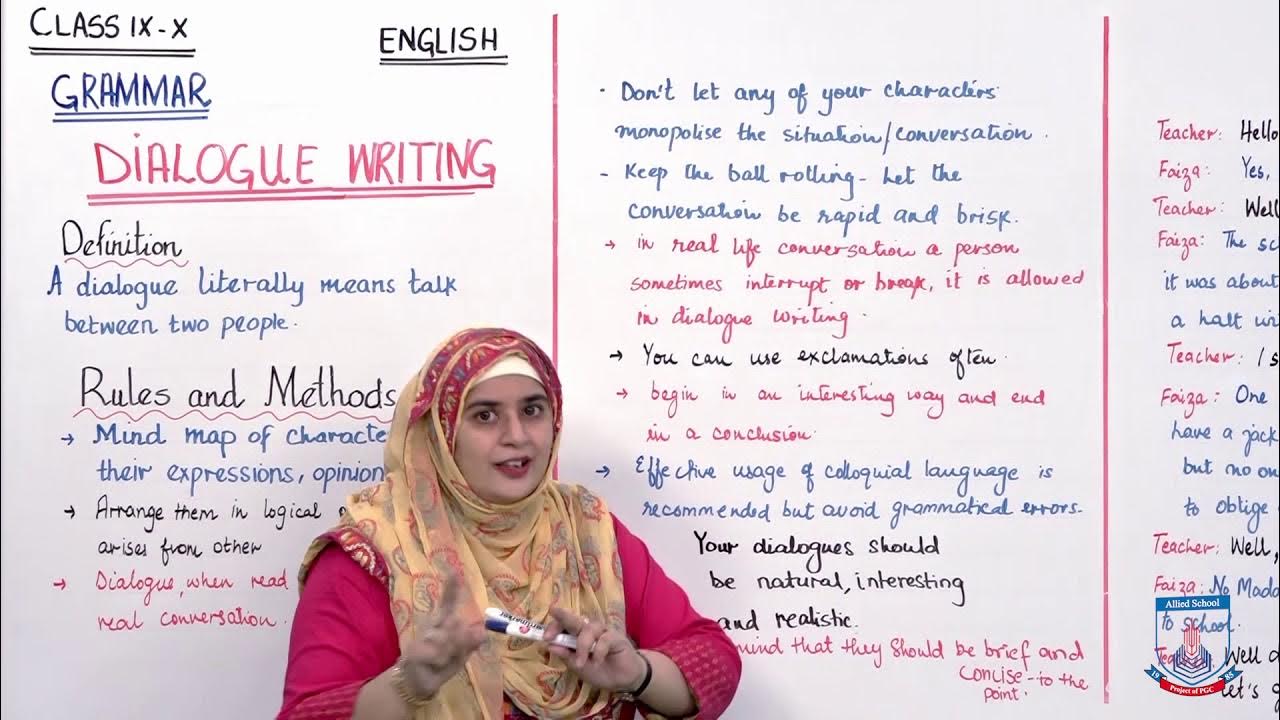 CLASS IX-X
ENGLISH
GRAMMAR
DIALOGUE WRITING
Definition
A dialogue literally means talk
between two people.
Rules and Methods
→ Mind map of characte
their expressions, opinion
→ Arrange them in logical
arises from other
→ Dialogue, when read
real conversation.
· Don't let any of your characters
monopolise the situation/conversation.
- Keep the ball rolling - Let the
conversation be rapid and brisk.
→ in real life conversation a person
sometimes interrupt or break, it is allowed
in dialogue writing.
→ You can use exclamations often.
→ begin in an interesting way and end
in a conclusion.
→ Effective usage of colloquial language is
recommended but avoid grammatical errors.
Your dialogues should
be natural, interesting
and realistic.
mind that they should be brief and
concise - to the
point.
Teacher: Hello
Faiza: Yes,
Teacher: Well
Faiza: The sc
it was about
a halt
Teacher: I s
Faiza: One
have a jack
but no on
to oblige
Teacher: Well,
Faiza: No Mada
to school.
Well d
Let's g
Allied School
19 85
Project of PGC